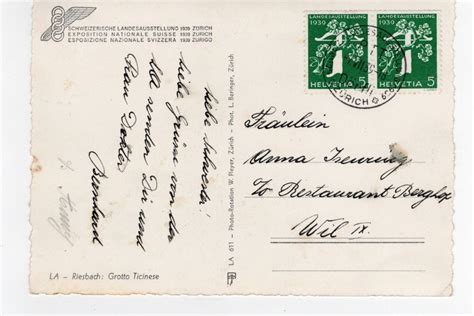 SCHWEIZERISCHE LANDESAUSSTELLUNG 1939 ZÜRICH
EXPOSITION NATIONALE SUISSE 1939 ZURICH
ESPOSIZIONE NAZIONALE SVIZZERA 1939 ZURIGO
LANDESAUSSTELLUNG
1939
HELVETIA 5
LANDESAUSSTELLUNG
1939
HELVETIA 5
ZÜRICH
Liebe Schwester!
Liebe Grüsse von der
LA senden Dir und
Frau Dokter
Bernhard
LA 611 - Photo-Rotation W. Pleyer, Zürich - Phot. L. Beringer, Zürich
Fräulein
Anna
Restaurant Berghof
Wil
LA - Riesbach: Grotto Ticinese